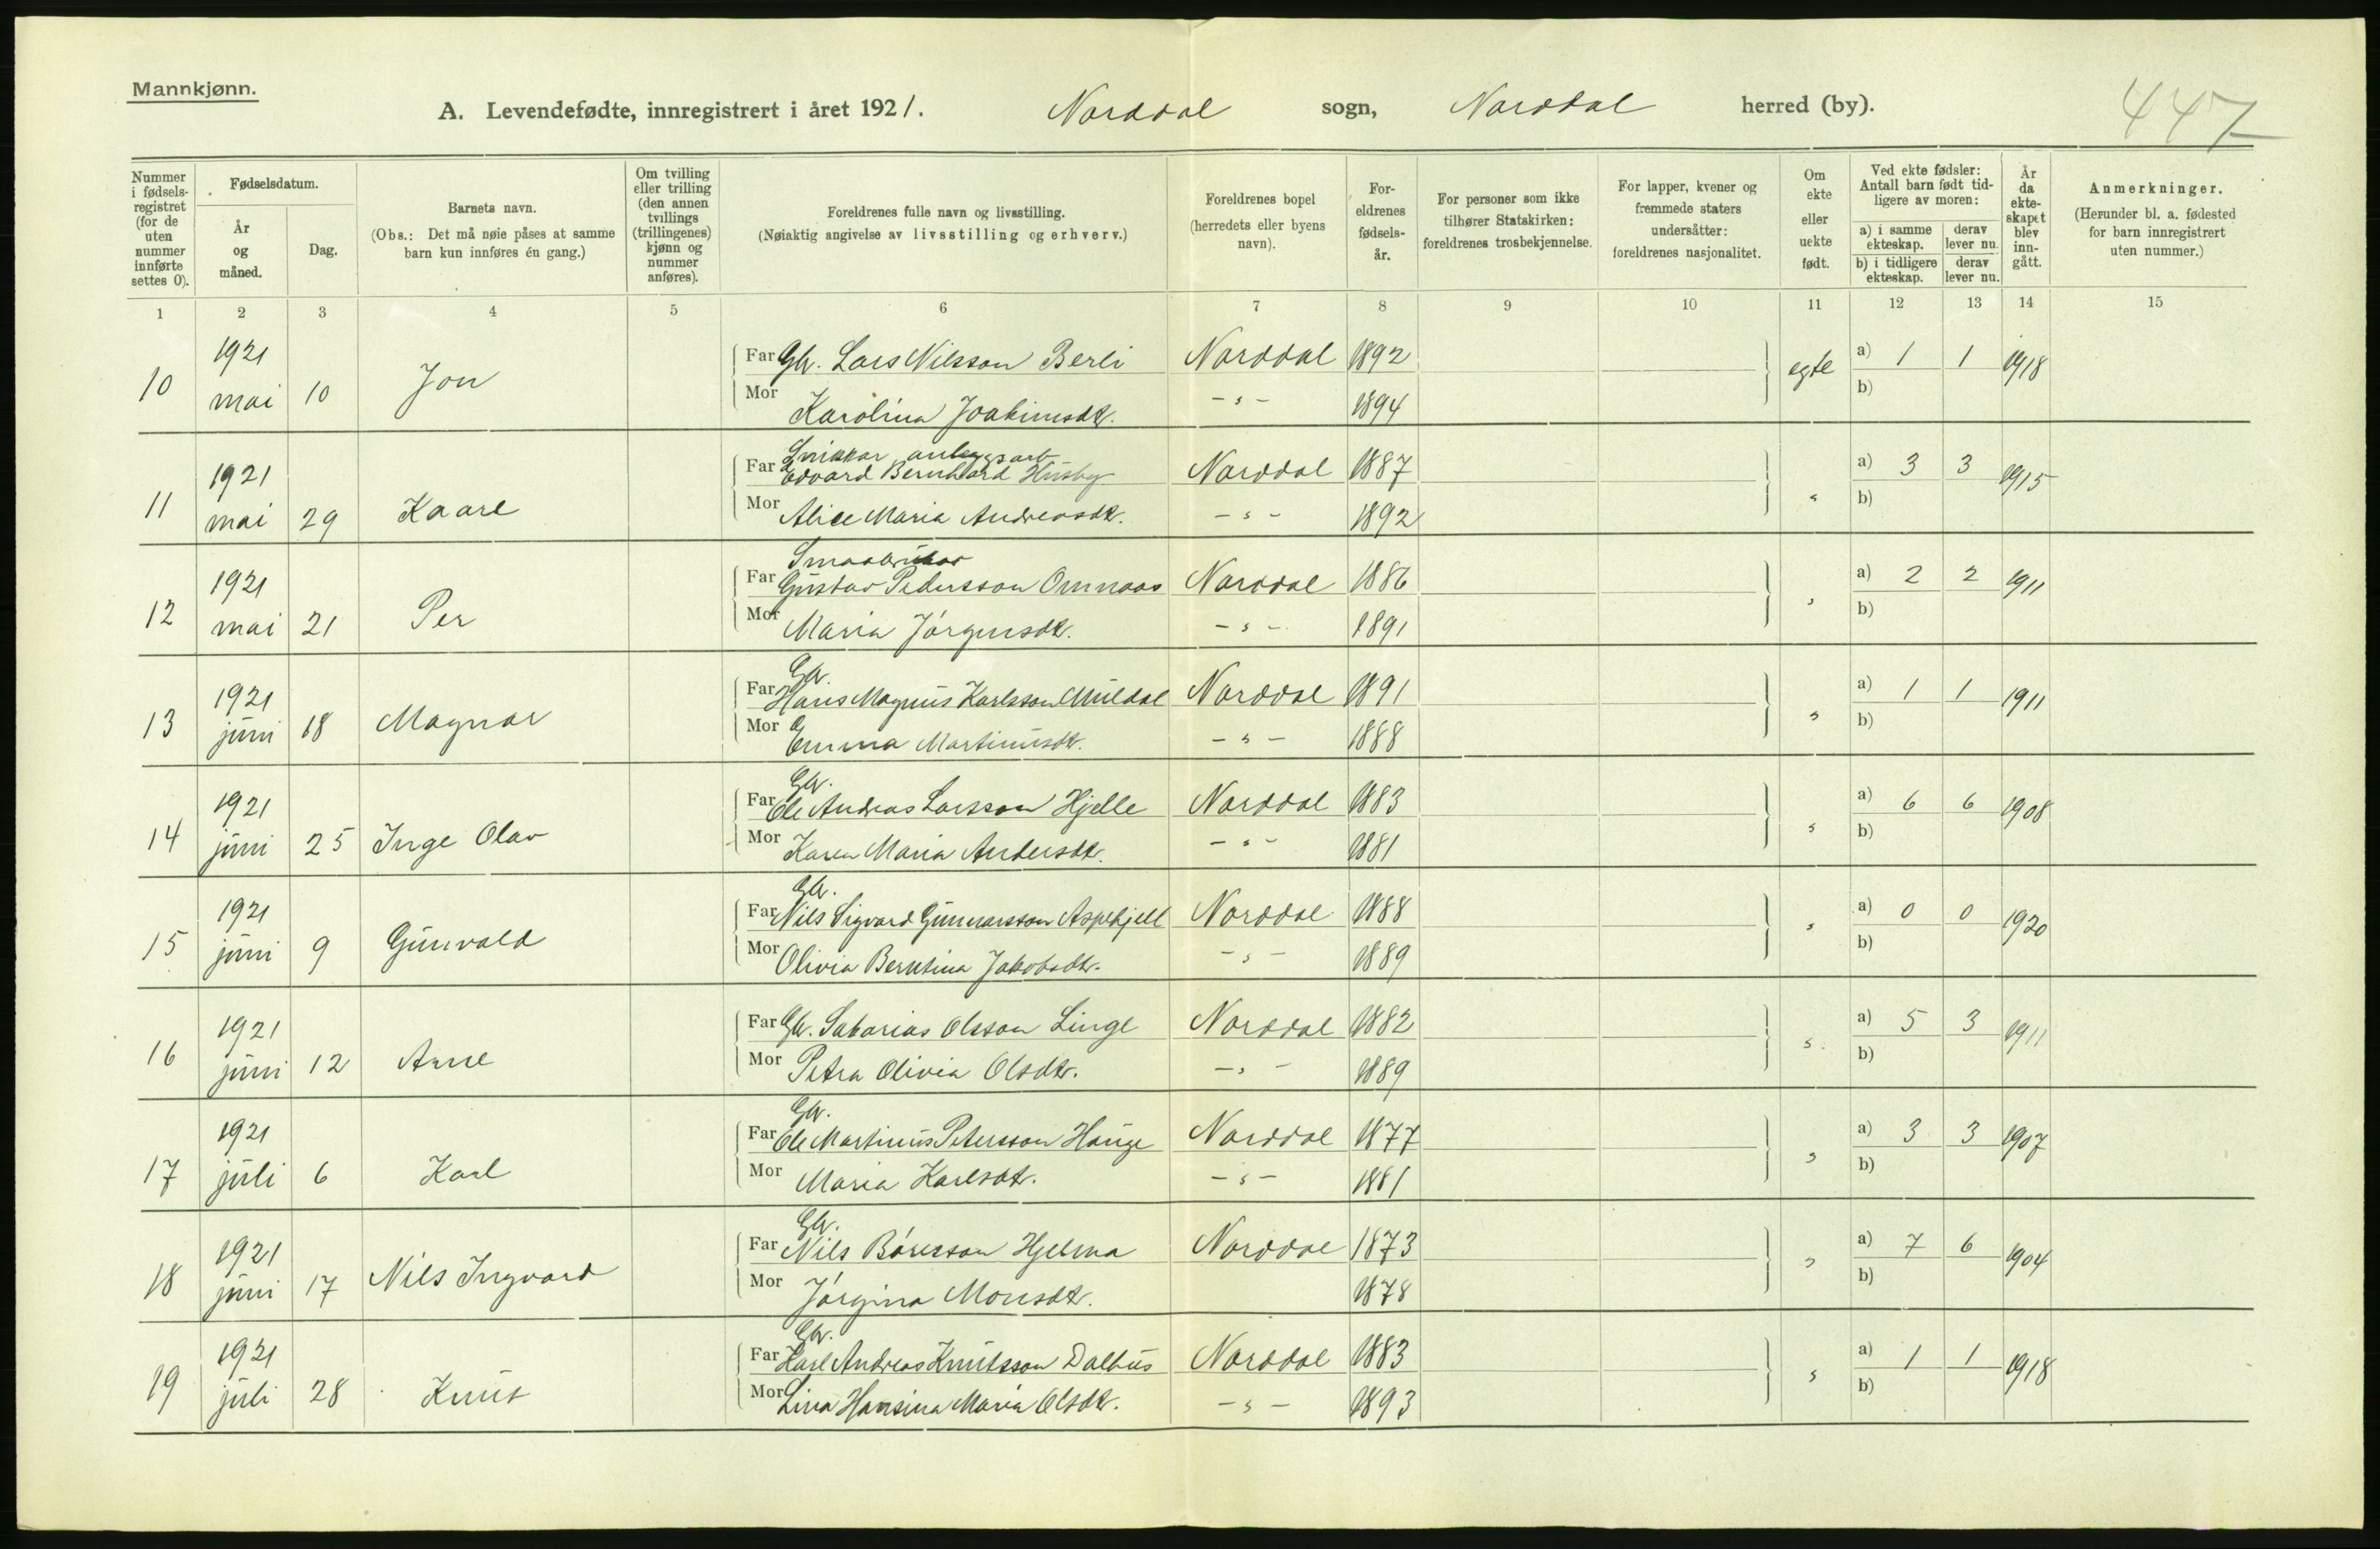 Mannkjønn.
A. Levendefødte, innregistrert i året 1921. Norddal sogn, Norddal herred (by). 447
Nummer i fødselsregistret (for de uten nummer innførte settes 0).
Fødselsdatum.
År og måned.
Dag.
Barnets navn.
(Obs.: Det må nøie påses at samme barn kun innføres én gang.)
Om tvilling eller trilling (den annen tvillings (trillingenes) kjønn og nummer anføres).
Foreldrenes fulle navn og livsstilling.
(Nøiaktig angivelse av livsstilling og erhverv.)
Foreldrenes bopel (herredets eller byens navn).
Foreldrenes fødselsår.
For personer som ikke tilhører Statskirken: foreldrenes trosbekjennelse.
For lapper, kvener og fremmede staters undersåtter: foreldrenes nasjonalitet.
Om ekte eller uekte født.
Ved ekte fødsler: Antall barn født tidligere av moren:
a) i samme ekteskap. derav lever nu.
b) i tidligere ekteskap. derav lever nu.
År da ekteskapet blev inngått.
Anmerkninger.
(Herunder bl. a. fødested for barn innregistrert uten nummer.)
1 2 3 4 5 6 7 8 9 10 11 12 13 14 15
10 1921 mai 10 Jon
Far Gbr. Lars Nilsson Berli Norddal 1892 egte a) 1 1 1918
Mor Karolina Joakimsdtr. - " - 1894 b)
11 1921 mai 29 Kaare
Snikkar, anleggsarb.
Far Edvard Bernhard Husby Norddal 1887 " a) 3 3 1915
Mor Alice Maria Andreasdtr. - " - 1892 b)
12 1921 mai 21 Per
Smaabrukar
Far Gustav Pedersson Omnaas Norddal 1886 " a) 2 2 1911
Mor Maria Jørgensdtr. - " - 1891 b)
13 1921 juni 18 Magnar
Gbr.
Far Hans Magnus Karlsson Muldal Norddal 1891 " a) 1 1 1911
Mor Emma Martinusdtr. - " - 1888 b)
14 1921 juni 25 Inge Olav
Gbr.
Far Ole Andreas Larsson Hjelle Norddal 1883 " a) 6 6 1908
Mor Karen Maria Andersdtr. - " - 1881 b)
15 1921 juni 9 Gunvald
Gbr.
Far Nils Sigvard Gunnarsson Aspehjell Norddal 1888 " a) 0 0 1920
Mor Olivia Berntina Jakobsdtr. - " - 1889 b)
16 1921 juni 12 Arne
Far Gbr. Sakarias Olsson Linge Norddal 1882 " a) 5 3 1911
Mor Petra Olivia Olsdtr. - " - 1889 b)
17 1921 juli 6 Karl
Gbr.
Far Ole Martinus Petersson Hauge Norddal 1877 " a) 3 3 1907
Mor Maria Karlsdtr. - " - 1881 b)
18 1921 juni 17 Nils Ingvard
Gbr.
Far Nils Båresson Hjelma Norddal 1873 " a) 7 6 1904
Mor Jørgina Monsdtr. 1878 b)
19 1921 juli 28 Knut
Gbr.
Far Karl Andreas Knutsson Dalhus Norddal 1883 " a) 1 1 1918
Mor Lina Hansina Maria Olsdtr. - " - 1893 b)